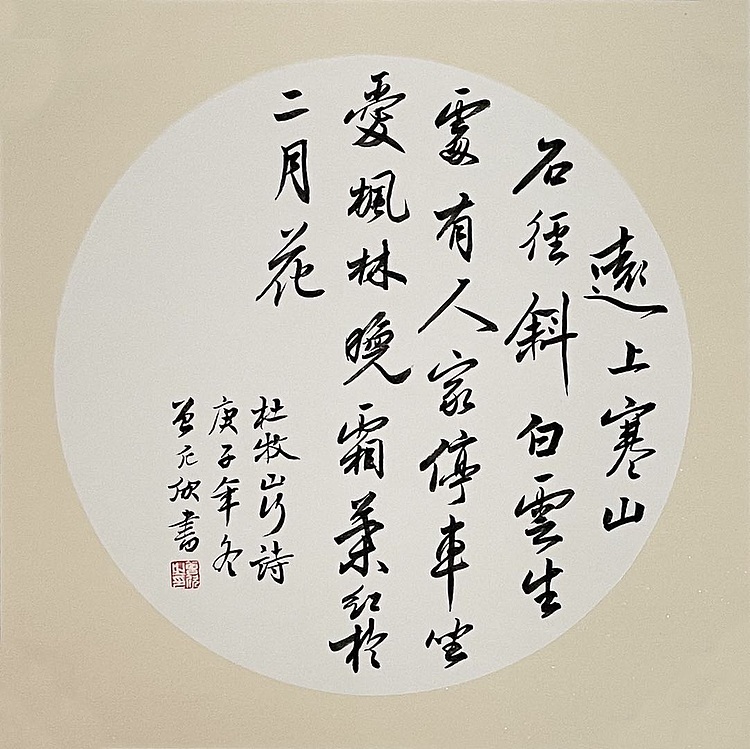 遠上寒山
石徑斜白雲生
處有人家停車坐
愛楓林晚霜葉紅於
二月花
杜牧山行詩
庚子年冬
曾欣書